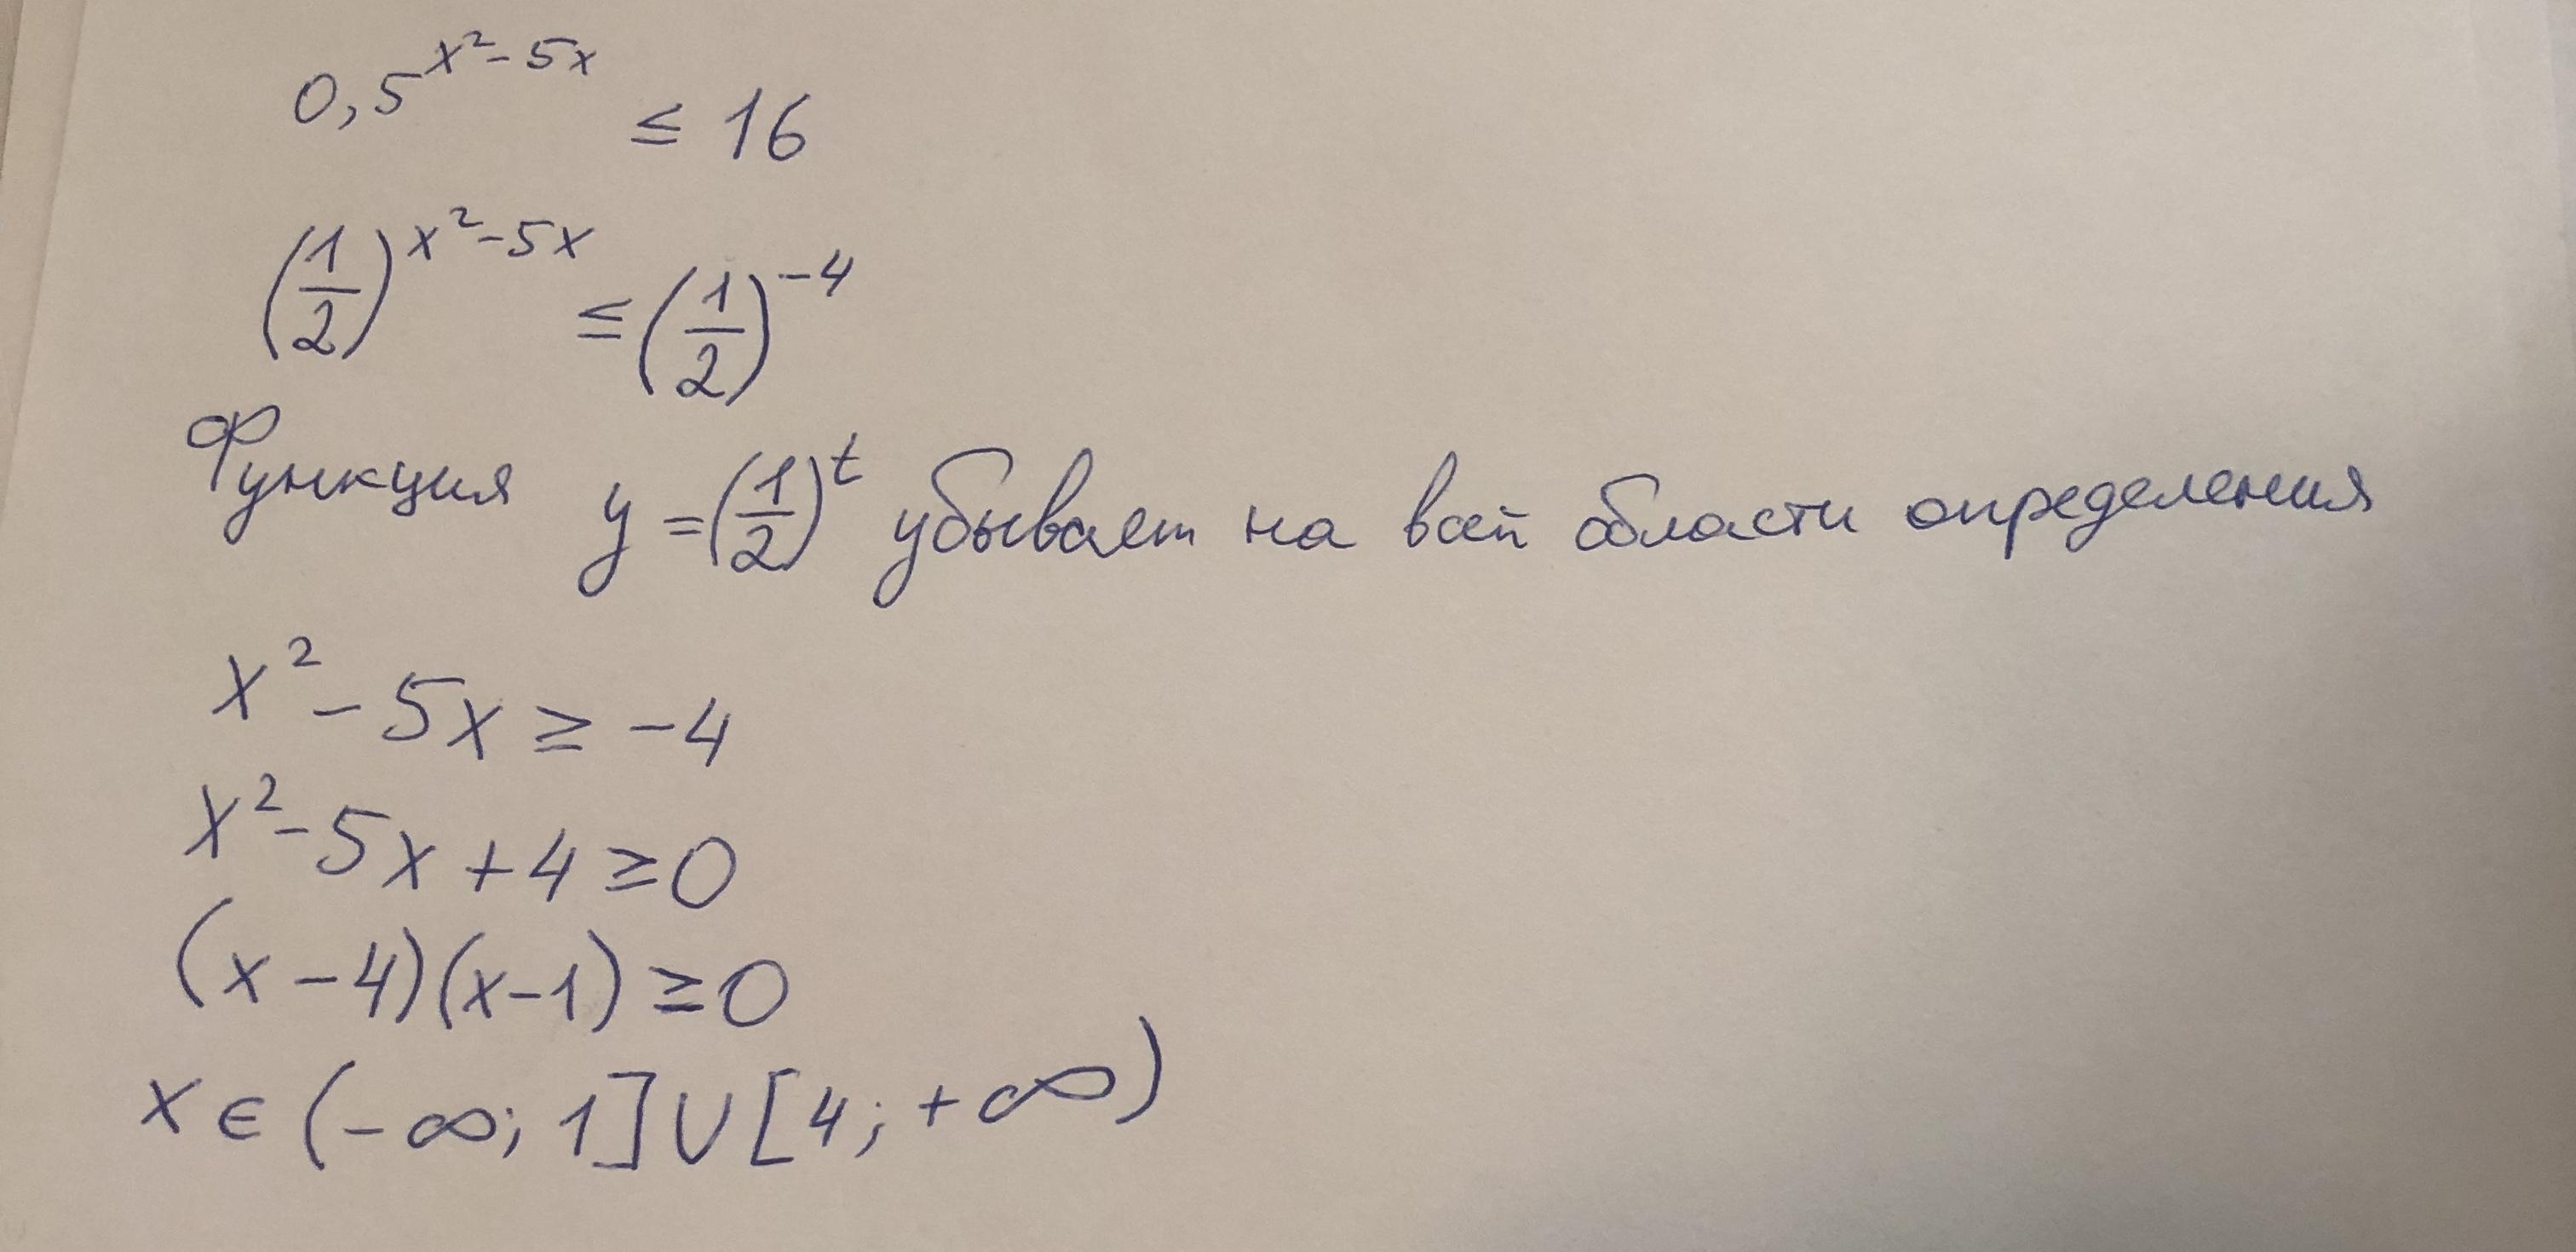 0,5^{x²-5x} ≤ 16
(1/2)^{x²-5x} ≤ (1/2)^{-4}
Функция y = (1/2)^t убывает на всей области определения
x² - 5x ≥ -4
x² - 5x + 4 ≥ 0
(x - 4)(x - 1) ≥ 0
x ∈ (-∞; 1] ∪ [4; +∞)